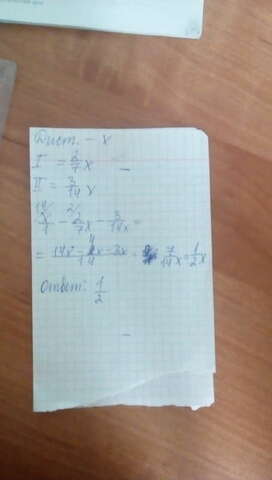 Дист. - x
I = 2/7 x
II = 3/14 x
14/ x/1 - 2/ 2/7 x - 3/14 x =
= 14x - 4x - 3x / 14 = 7/14 x = 1/2 x
Ответ: 1/2